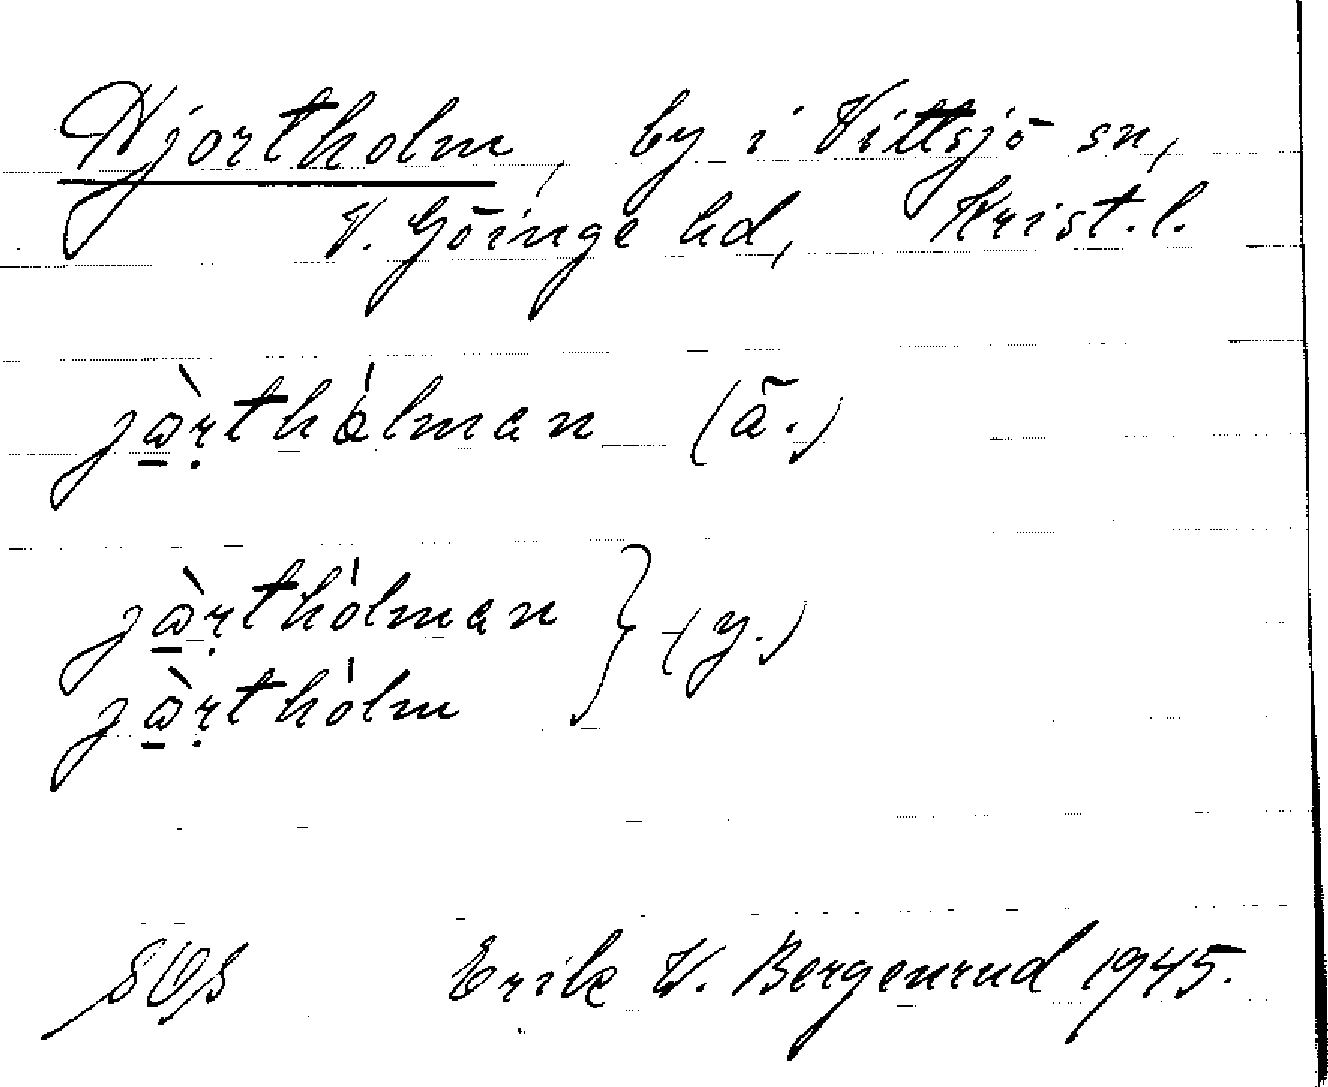 Hjortholm, by i Vittsjö sn,
V. Göinge hd, Krist.l.
jàrthólman (ä.)
jàrthólman } (y.)
jàrthólm
SOS Erik W. Bergenrud 1945.